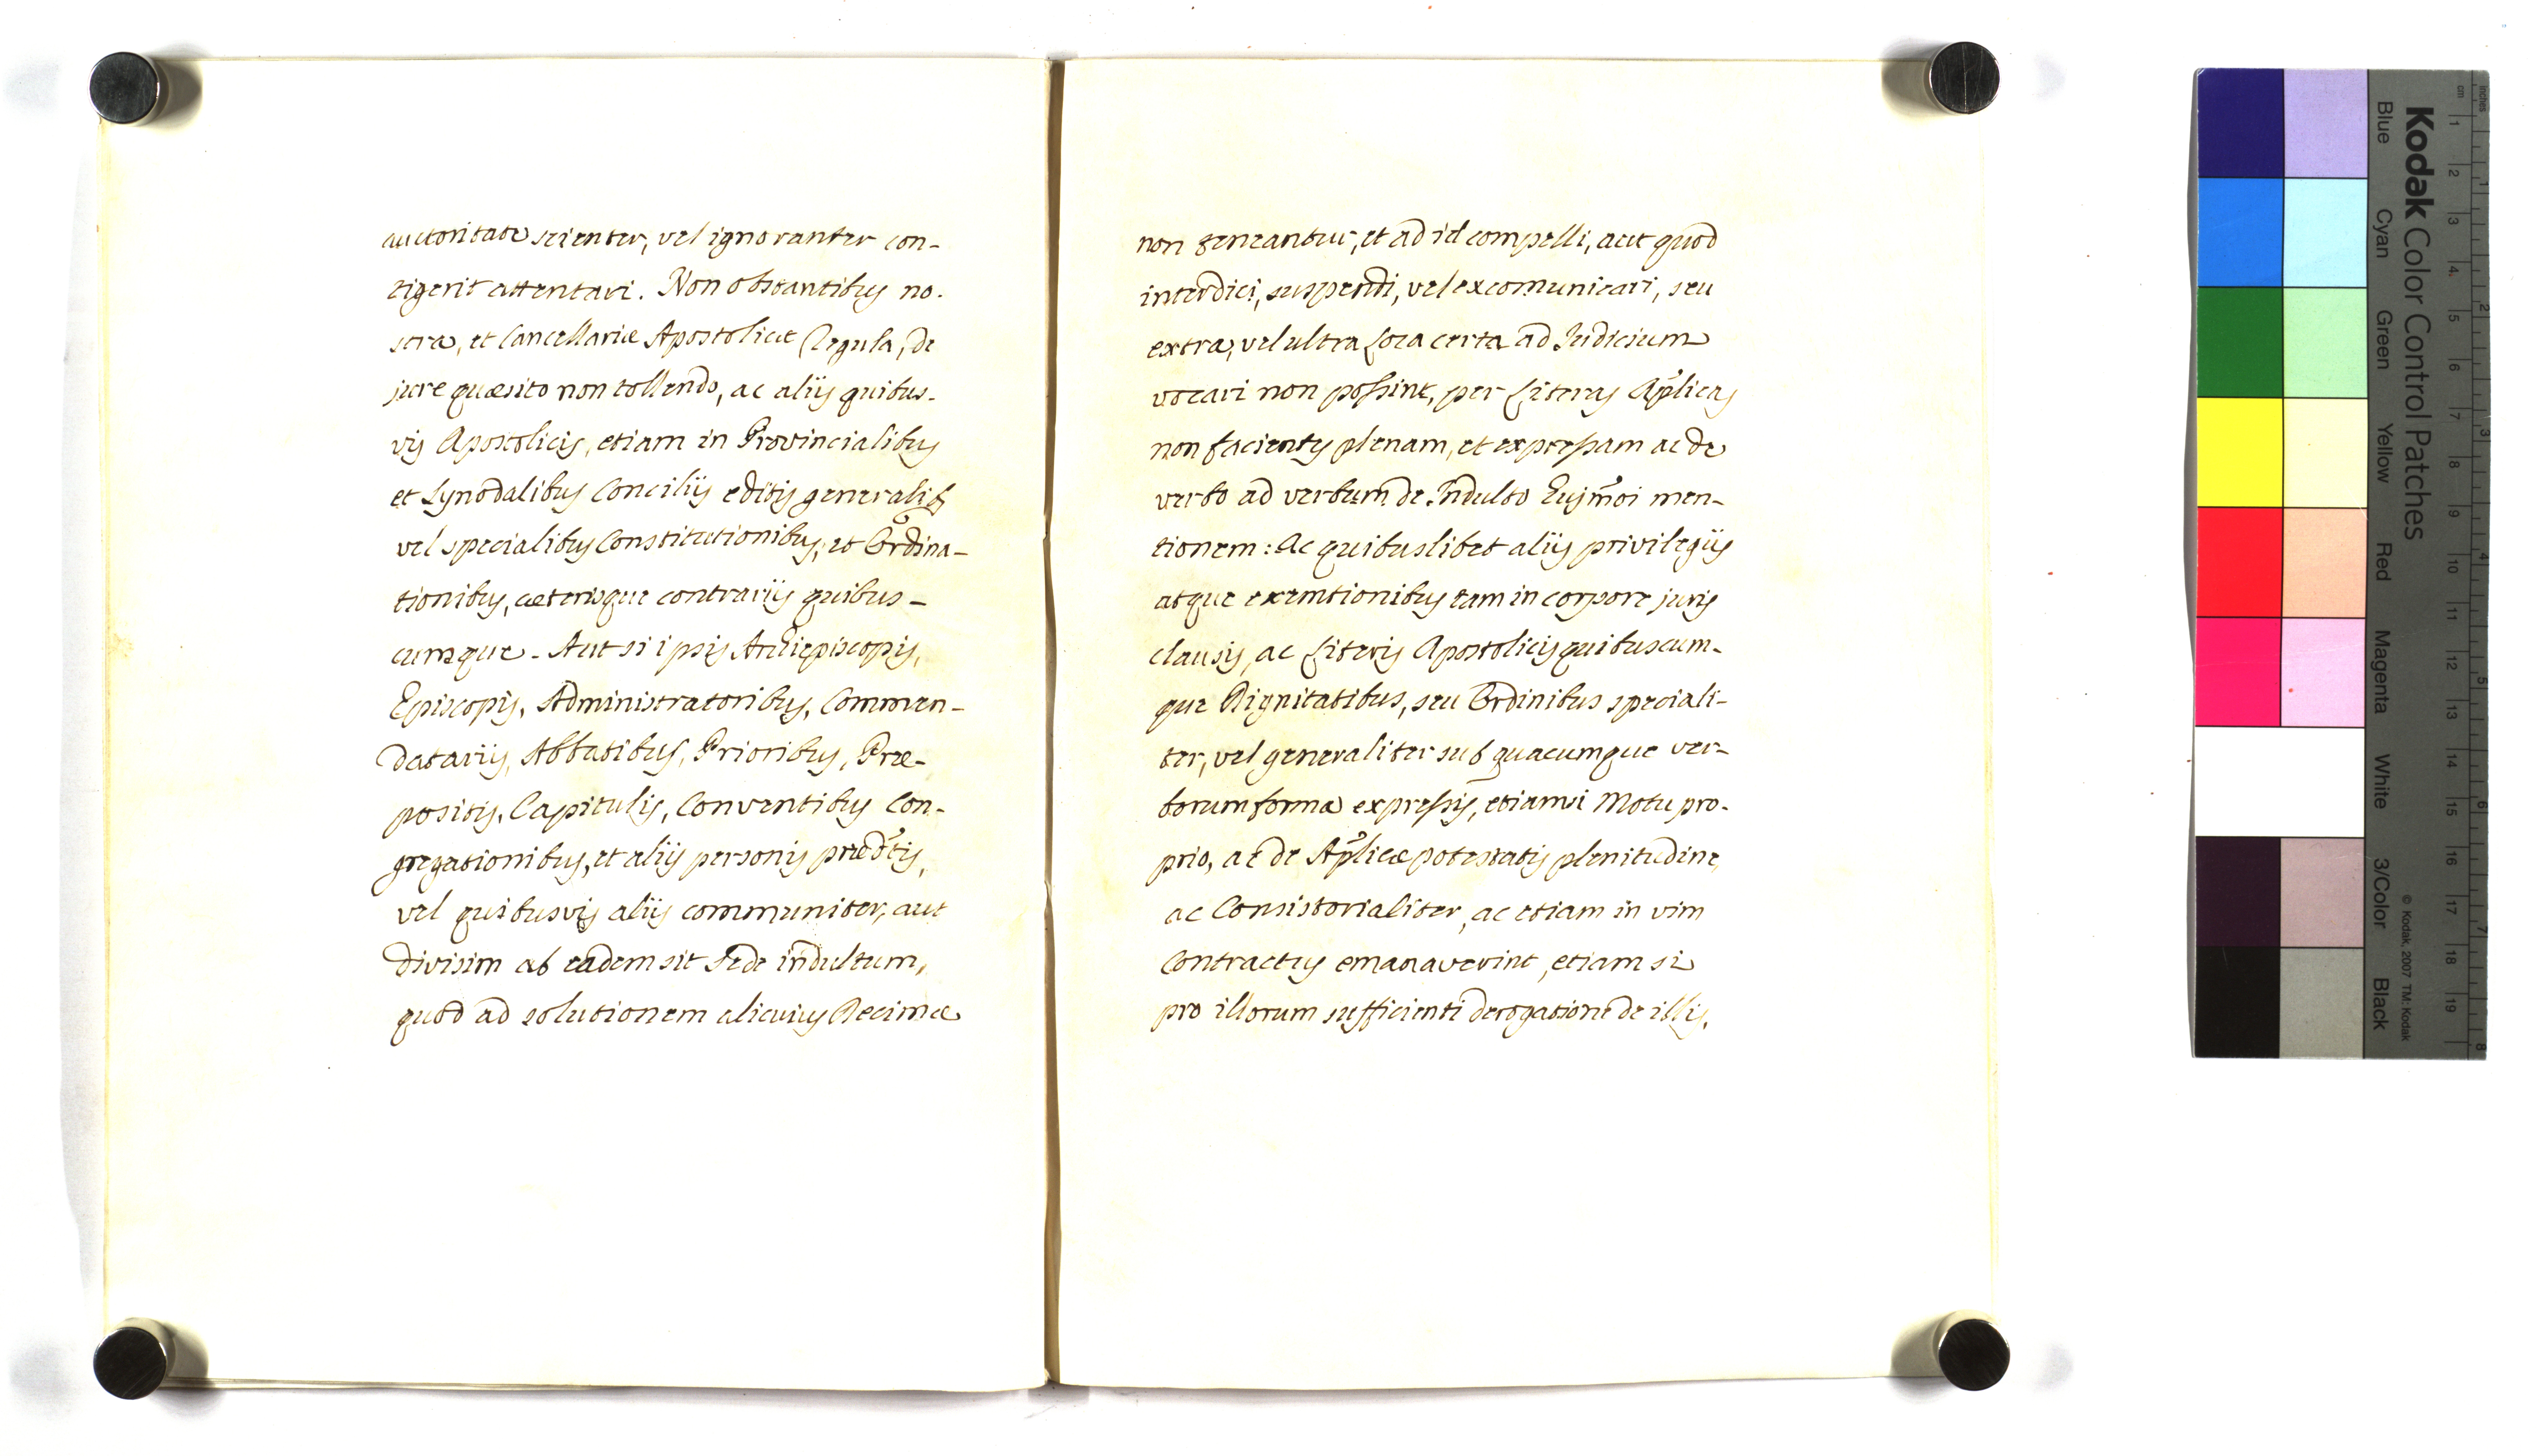 auctoritate scienter, vel ignoranter con-
tigerit attentari. Non obstantibus no-
stra, et Cancellariæ Apostolicæ Regula, de
jure quæsito non tollendo, ac aliis quibus-
vis Apostolicis, etiam in Provincialibus
et Synodalibus Conciliis editis generalib9
vel specialibus Constitutionibus, et Ordina-
tionibus, cæterisque contrariis quibus-
cumque. Aut si ipsis Archiepiscopis,
Episcopis, Administratoribus, Commen-
datariis, Abbatibus, Prioribus, Præ-
positis, Capitulis, Conventibus Con-
gregationibus, et aliis personis prædtis,
vel quibusvis aliis communiter, aut
divisim ab eadem sit Sede indultum,
quod ad solutionem alicuius Decimæ
non teneantur, et ad id compelli, aut quod
interdici, suspendi, vel excomunicari, seu
extra, vel ultra Loca certa ad Judicium
vocari non possint, per Literas Aplicas
non facientes plenam, et expressam ac de
verbo ad verbum de Indulto Eujmoi men-
tionem: Ac quibuslibet aliis privilegiis
atque exemtionibus tam in corpore juris
clausis, ac Literis Apostolicis quibuscum-
que Dignitatibus, seu Ordinibus speciali-
ter, vel generaliter sub quacumque ver-
borum forma expressis, etiamsi Motu pro-
prio, ac de Aplicæ potestatis plenitudine,
ac Consistorialiter, ac etiam in vim
Contractus emanaverint, etiam si
pro illorum sufficienti derogatione de illis,
Kodak Color Control Patches
Blue Cyan Green Yellow Red Magenta White 3/Color Black
© Kodak, 2007 TM: Kodak
inches 1 2 3 4 5 6 7 8
cm 1 2 3 4 5 6 7 8 9 10 11 12 13 14 15 16 17 18 19